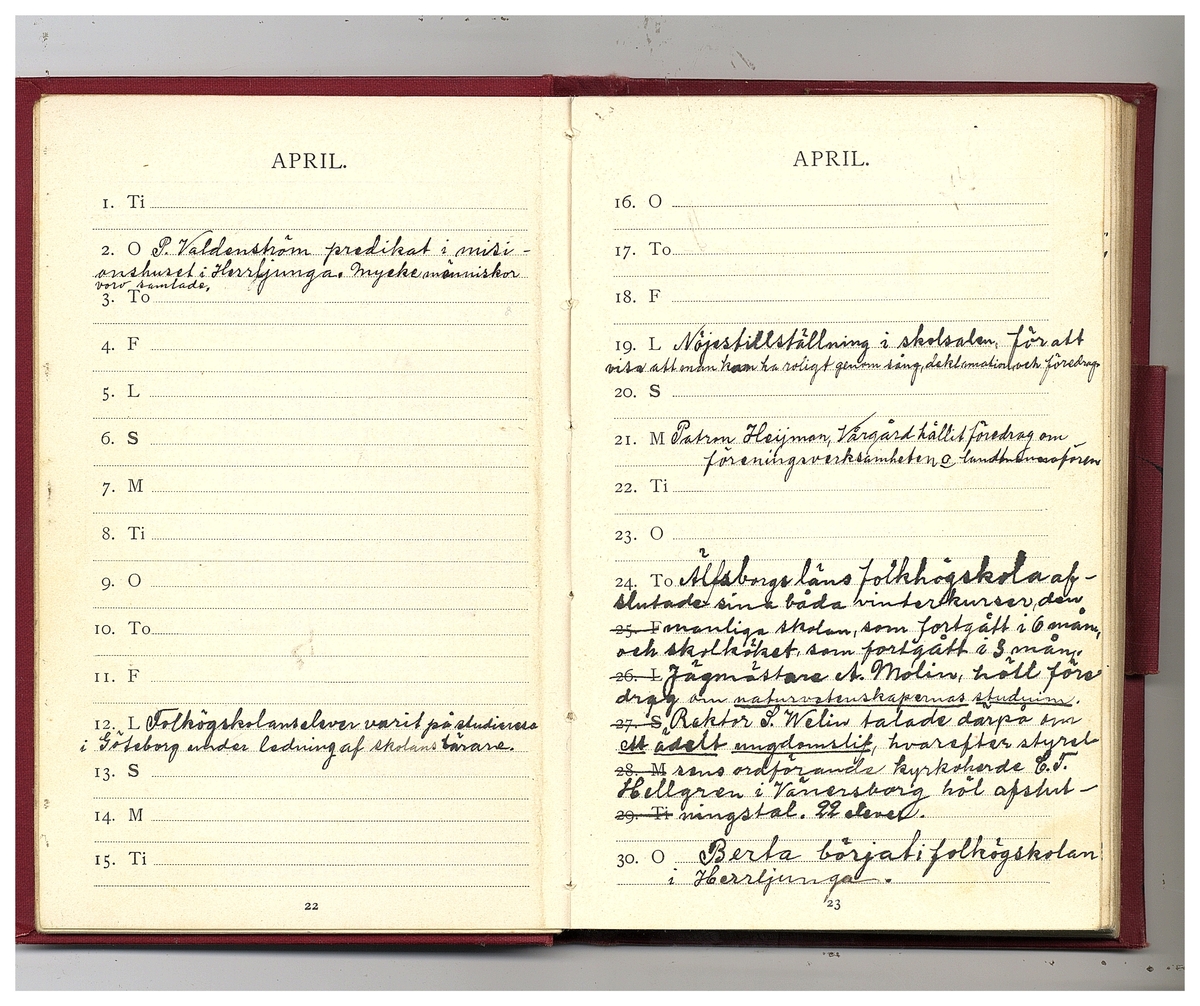 APRIL.
1. Ti
2. O P. Valdenström predikat i misi-
onshuset i Herrljunga. Mycke människor
voro samlade.
3. To
4. F
5. L
6. S
7. M
8. Ti
9. O
10. To
11. F
12. L Folkögskolanselever varit på studieresa
i Göteborg under ledning af skolans lärare.
13. S
14. M
15. Ti
22
APRIL.
16. O
17. To
18. F
19. L Nöjestillställning i skolsalen, för att
visa att man kan ha roligt genom sång, deklamation och föredrag.
20. S
21. M Patron Heijman, Vårgård hållit föredrag om
föreningsverksamheten o
22. Ti
23. O
24. To Älfsborgs läns folkhögskola af-
slutade sina båda vinterkurser, den
25. F manliga skolan, som fortgått i 6 mån,
och skolköket, som fortgått i 3 mån.
26. L Jägmästare A. Molin, höll före
drag om naturvetenskapernas studium.
27. S Rektor S. Welin talade därpå om
ett ädelt ungdomslif, hvarefter styrel
28. M sens ordförande kyrkoherde C. F.
Hellgren i Vänersborg höl afslut-
29. Ti ningstal. 22 elever.
30. O Berta börjat i folkögskolan
i Herrljunga.
23